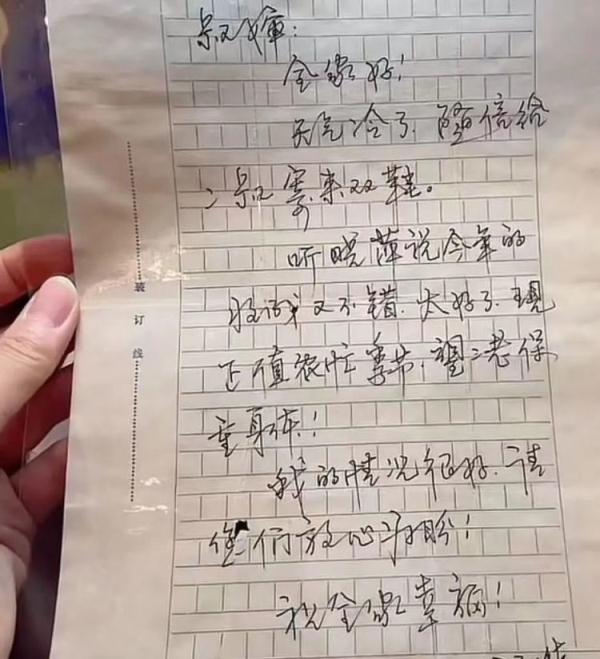 叔婶:
全家好!
天气冷了.随信给
二叔寄来双鞋。
听晓萍说今年的
收成又不错.太好了.现
正值农忙季节,望二老保
重身体!
我的情况很好.请
您们放心为盼!
祝全家幸福!
装订线